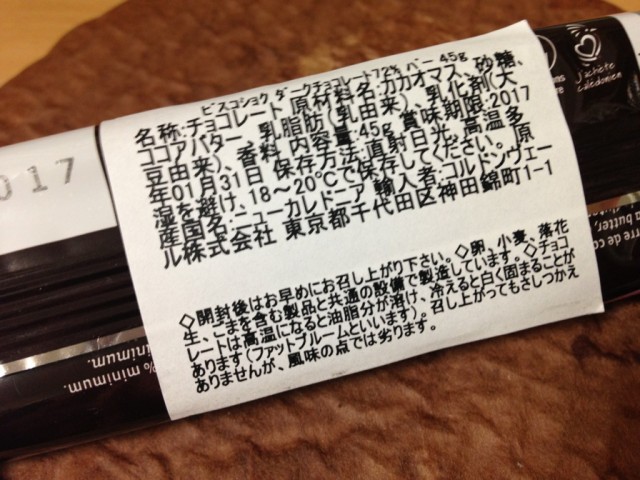 ビスコショク ダークチョコレート72% ベニー 45g
名称:チョコレート 原材料名:カカオマス、砂糖、
ココアバター、乳脂肪(乳由来)、乳化剤(大
豆由来)、香料 内容量:45g 賞味期限:2017
年01月31日 保存方法:直射日光、高温多
湿を避け、18~20℃で保存してください。 原
産国名:ニューカレドニア 輸入者:コルドンヴェー
ル株式会社 東京都千代田区神田錦町1-1
◇開封後はお早めにお召し上がり下さい。◇卵、小麦、落花
生、ごまを含む製品と共通の設備で製造しています。◇チョコ
レートは高温になると油脂分が溶け、冷えると白く固まることが
あります(ファットブルームといいます)。召し上がってもさしつかえ
ありませんが、風味の点では劣ります。
017
J'achète
calédonien
% minimum.
minimum.